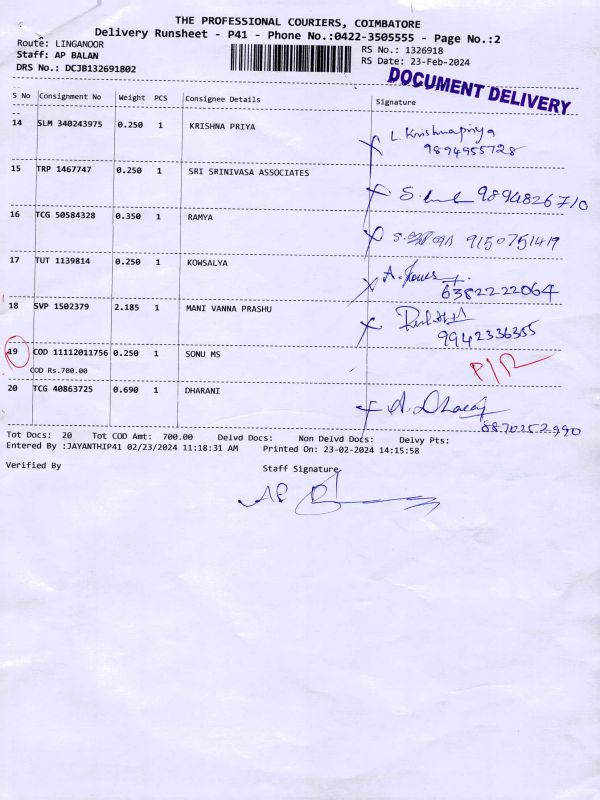 THE PROFESSIONAL COURIERS, COIMBATORE
Delivery Runsheet - P41 - Phone No.:0422-3505555 - Page No.:2
Route: LINGANOOR
RS No.: 1326918
Staff: AP BALAN
RS Date: 23-Feb-2024
DRS No.: DCJB132691802
DOCUMENT DELIVERY
S No Consignment No Weight PCS Consignee Details Signature
14 SLM 340243975 0.250 1 KRISHNA PRIYA L. Krishnapriya
9894955728
15 TRP 1467747 0.250 1 SRI SRINIVASA ASSOCIATES 9894826710
16 TCG 50584328 0.350 1 RAMYA 9150751419
17 TUT 1139814 0.250 1 KOWSALYA
6382222064
18 SVP 1502379 2.185 1 MANI VANNA PRASHU
9942336355
19 COD 11112011756 0.250 1 SONU MS
COD Rs.700.00
20 TCG 40863725 0.690 1 DHARANI
8870252990
Tot Docs: 20 Tot COD Amt: 700.00 Delvd Docs: Non Delvd Docs: Delvy Pts:
Entered By :JAYANTHIP41 02/23/2024 11:18:31 AM Printed On: 23-02-2024 14:15:58
Verified By Staff Signature